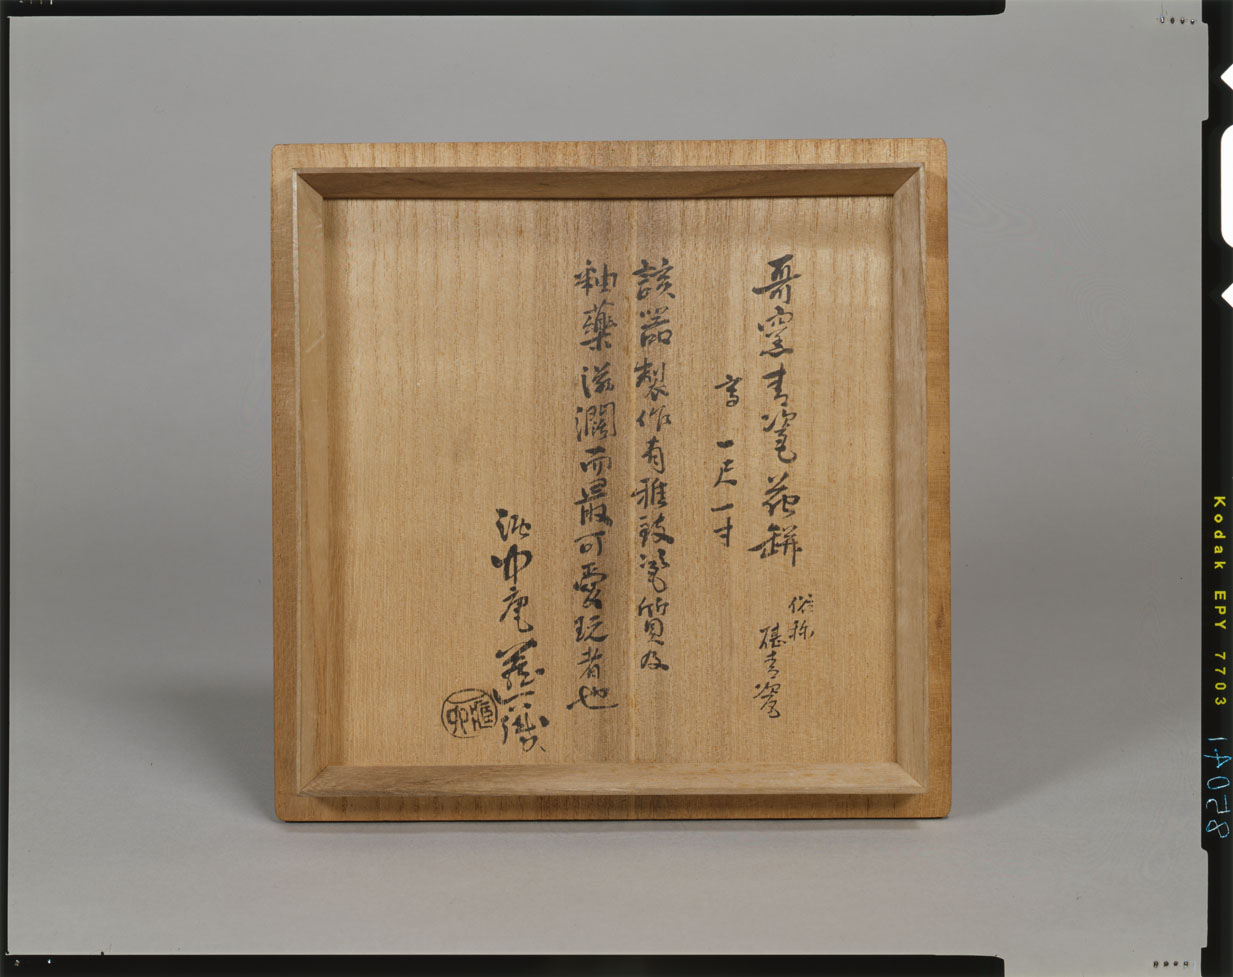 哥窯青瓷花缾
俗称
砧青瓷
高一尺一寸
該器製作有雅致瓷質及
釉藥滋潤而最可愛玩者也
漉巾庵
Kodak EPY 7703
14058